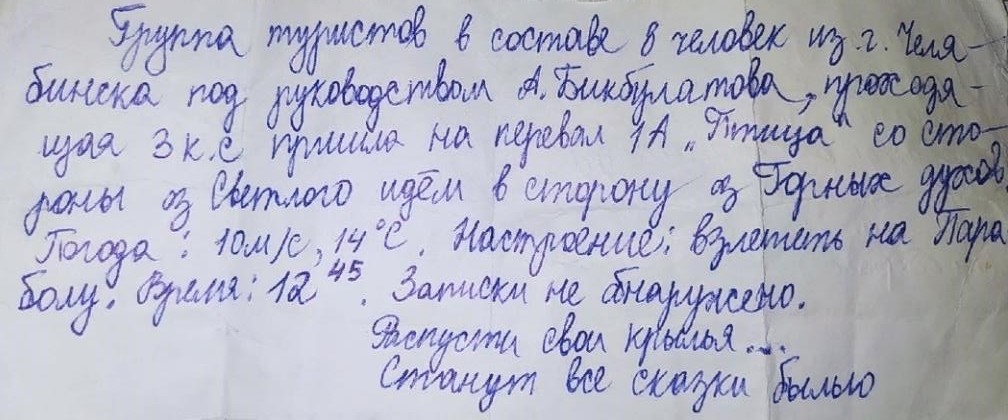 Группа туристов в составе 8 человек из г. Челя-
бинска под руководством А. Бикбулатова, проходя-
щая 3 к.с пришла на перевал 1А „Птица“ со сто-
роны оз Светлого идём в сторону оз Горных духов
Погода: 10м/с, 14°С. Настроение: взлететь на Пара
болу. Время: 12 45. Записки не обнаружено.
Распусти свои крылья...
Станут все сказки былью